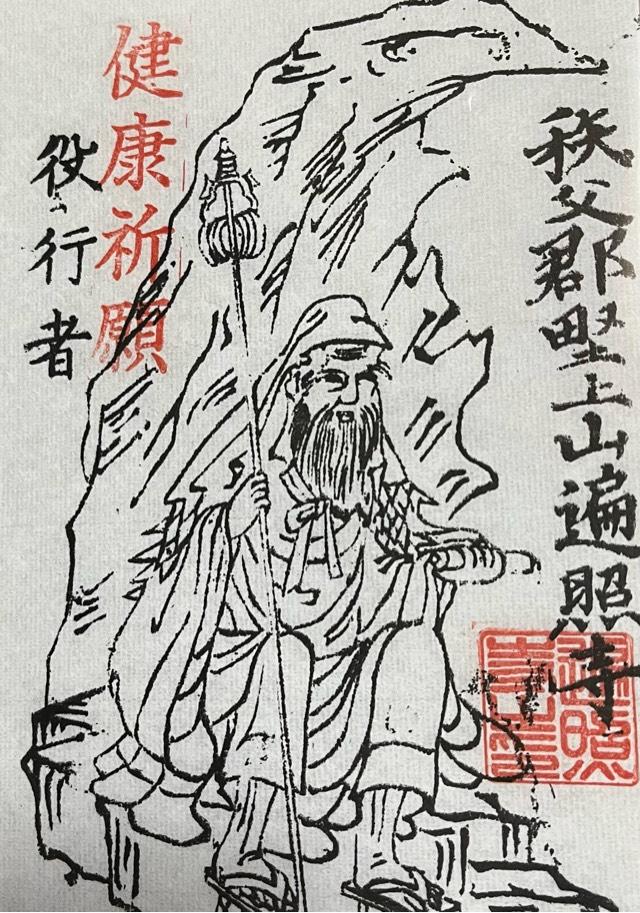 秩父郡野上山遍照寺
健康祈願
役行者
遍照
寺印